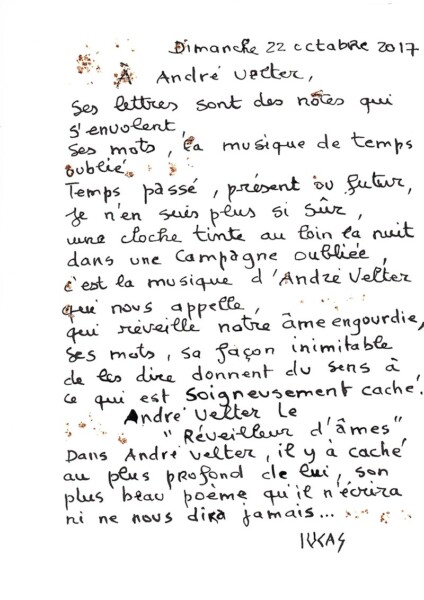 Dimanche 22 octobre 2017
À André Velter,
Ses lettres sont des notes qui
s'envolent,
Ses mots, la musique de temps
oublié.
Temps passé, présent ou futur,
Je n'en suis plus si sûr,
une cloche tinte au loin la nuit
dans une campagne oubliée,
c'est la musique d'André Velter
qui nous appelle,
qui réveille notre âme engourdie,
Ses mots, sa façon inimitable
de les dire donnent du sens à
ce qui est soigneusement caché.
André Velter le
"Réveilleur d'âmes"
Dans André Velter, il y à caché
au plus profond de lui, son
plus beau poème qu'il n'écrira
ni ne nous dira jamais...
LUCAS